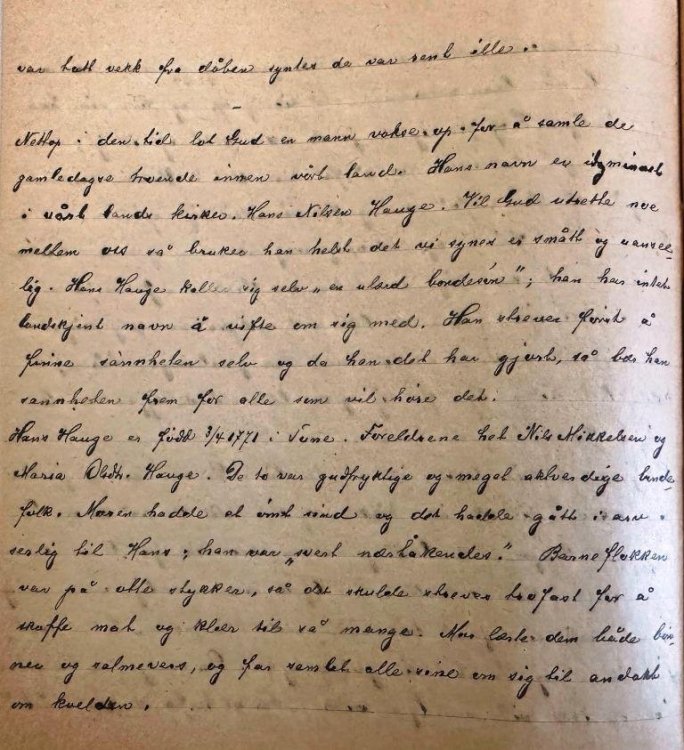 var tatt vekk fra dåben syntes de var rent ille.
Nettop i den tid lot Gud en mann vokse op for å samle de
gamledagse troende innen vårt land. Hans navn er
i vårt lands kirke. Hans Nilsen Hauge. Vil Gud utrette noe
mellem oss så bruker han helst det vi synes er smått og uansee-
lig. Hans Hauge kaller sig selv "en ulærd bondesön"; han har intet
landskjent navn å vifte om sig med. Han strever först å
finne sannheten selv og da han det har gjort, så bær han
sannheten frem for alle som vil höre det.
Hans Hauge er födt 3/4 1771 i Tune. Foreldrene het Nils Mikkelsen og
Maria Olsdtr. Hauge. De to var gudfryktige og meget aktverdige bønde-
folk. Moren hadde et ömt sind og det hadde gått i arv
serlig til Hans; han var "svert nærtakendes." Barneflokken
var på otte stykker, så det skulde streves trofast for å
skaffe mat og klær til så mange. Mor lærte dem både bön-
ner og salmevers, og far samlet alle sine om sig til andakt
om kvelden.